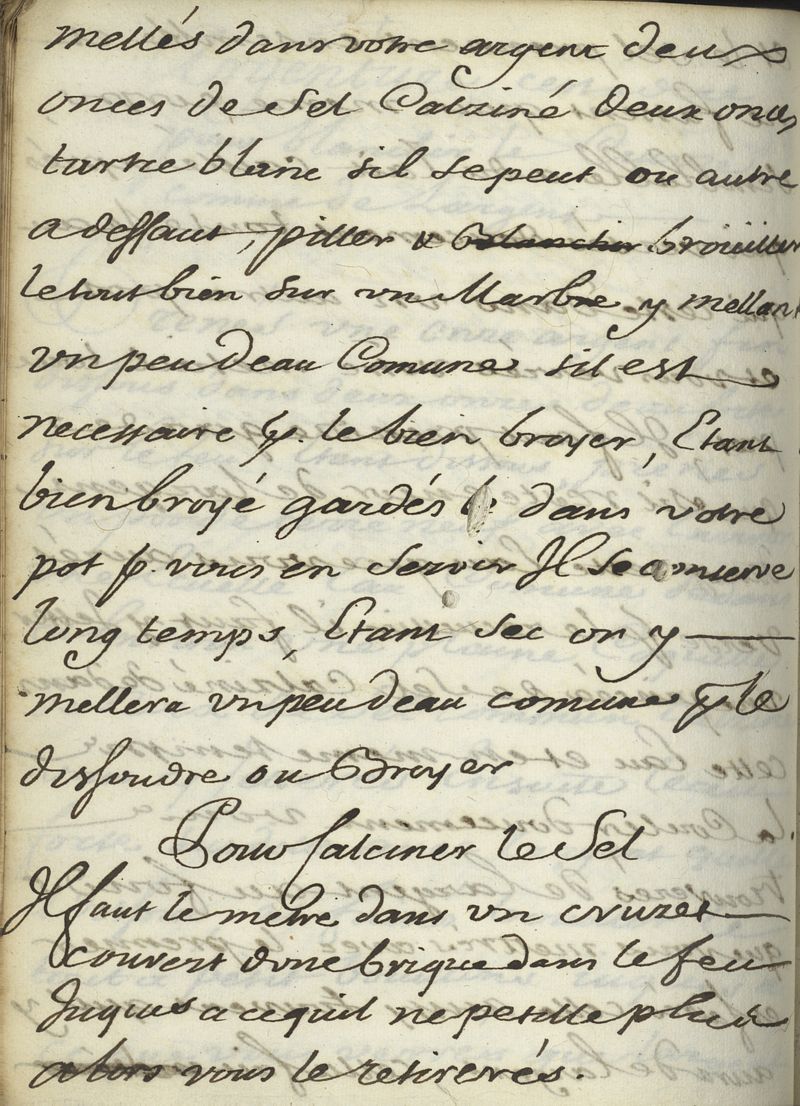 mellés dans votre argent deux
onces de Sel Calziné deux onces
tartre blanc sil se peut ou autre
a deffaut, piller & Blanchir broüiller
le tout bien sur un Marbre y mellant
un peu deau Comune sil est
necessaire p. le bien broyer, Etant
bien broyé gardés le dans votre
pot p. vous en servir Il se conserve
long temps, Etant sec on y
mellera un peu deau comune p. le
dissoudre ou Broyer
Pour Calciner le Sel
Il faut le metre dans un cruzet
couvert dune brique dans le feu
Juques a cequil ne petille plus &
alors vous le retirerés.